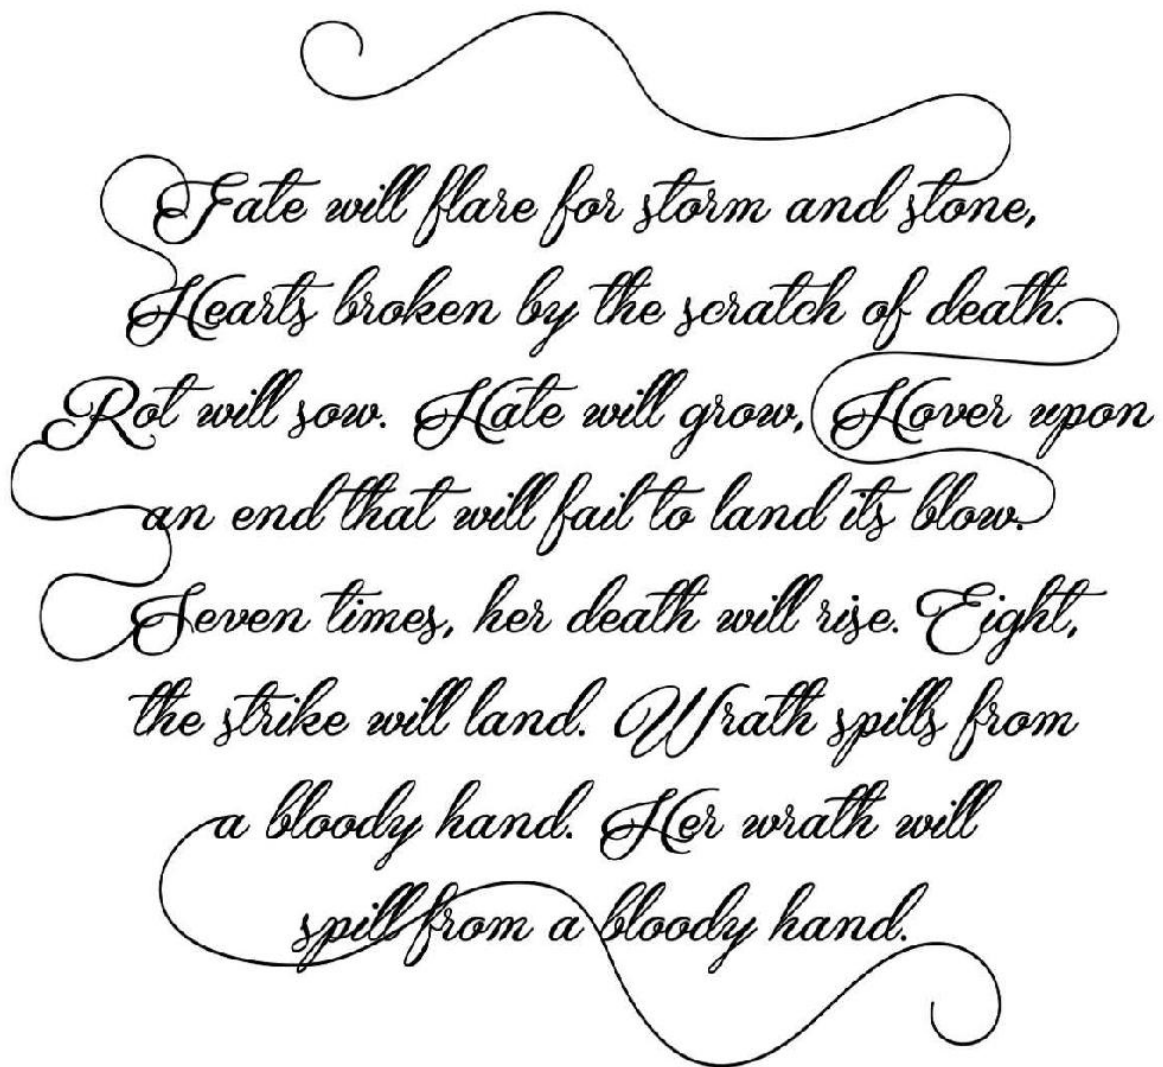 Fate will flare for storm and stone,
Hearts broken by the scratch of death.
Rot will sow. Hate will grow, Hover upon
an end that will fail to land its blow.
Seven times, her death will rise. Eight,
the strike will land. Wrath spills from
a bloody hand. Her wrath will
spill from a bloody hand.